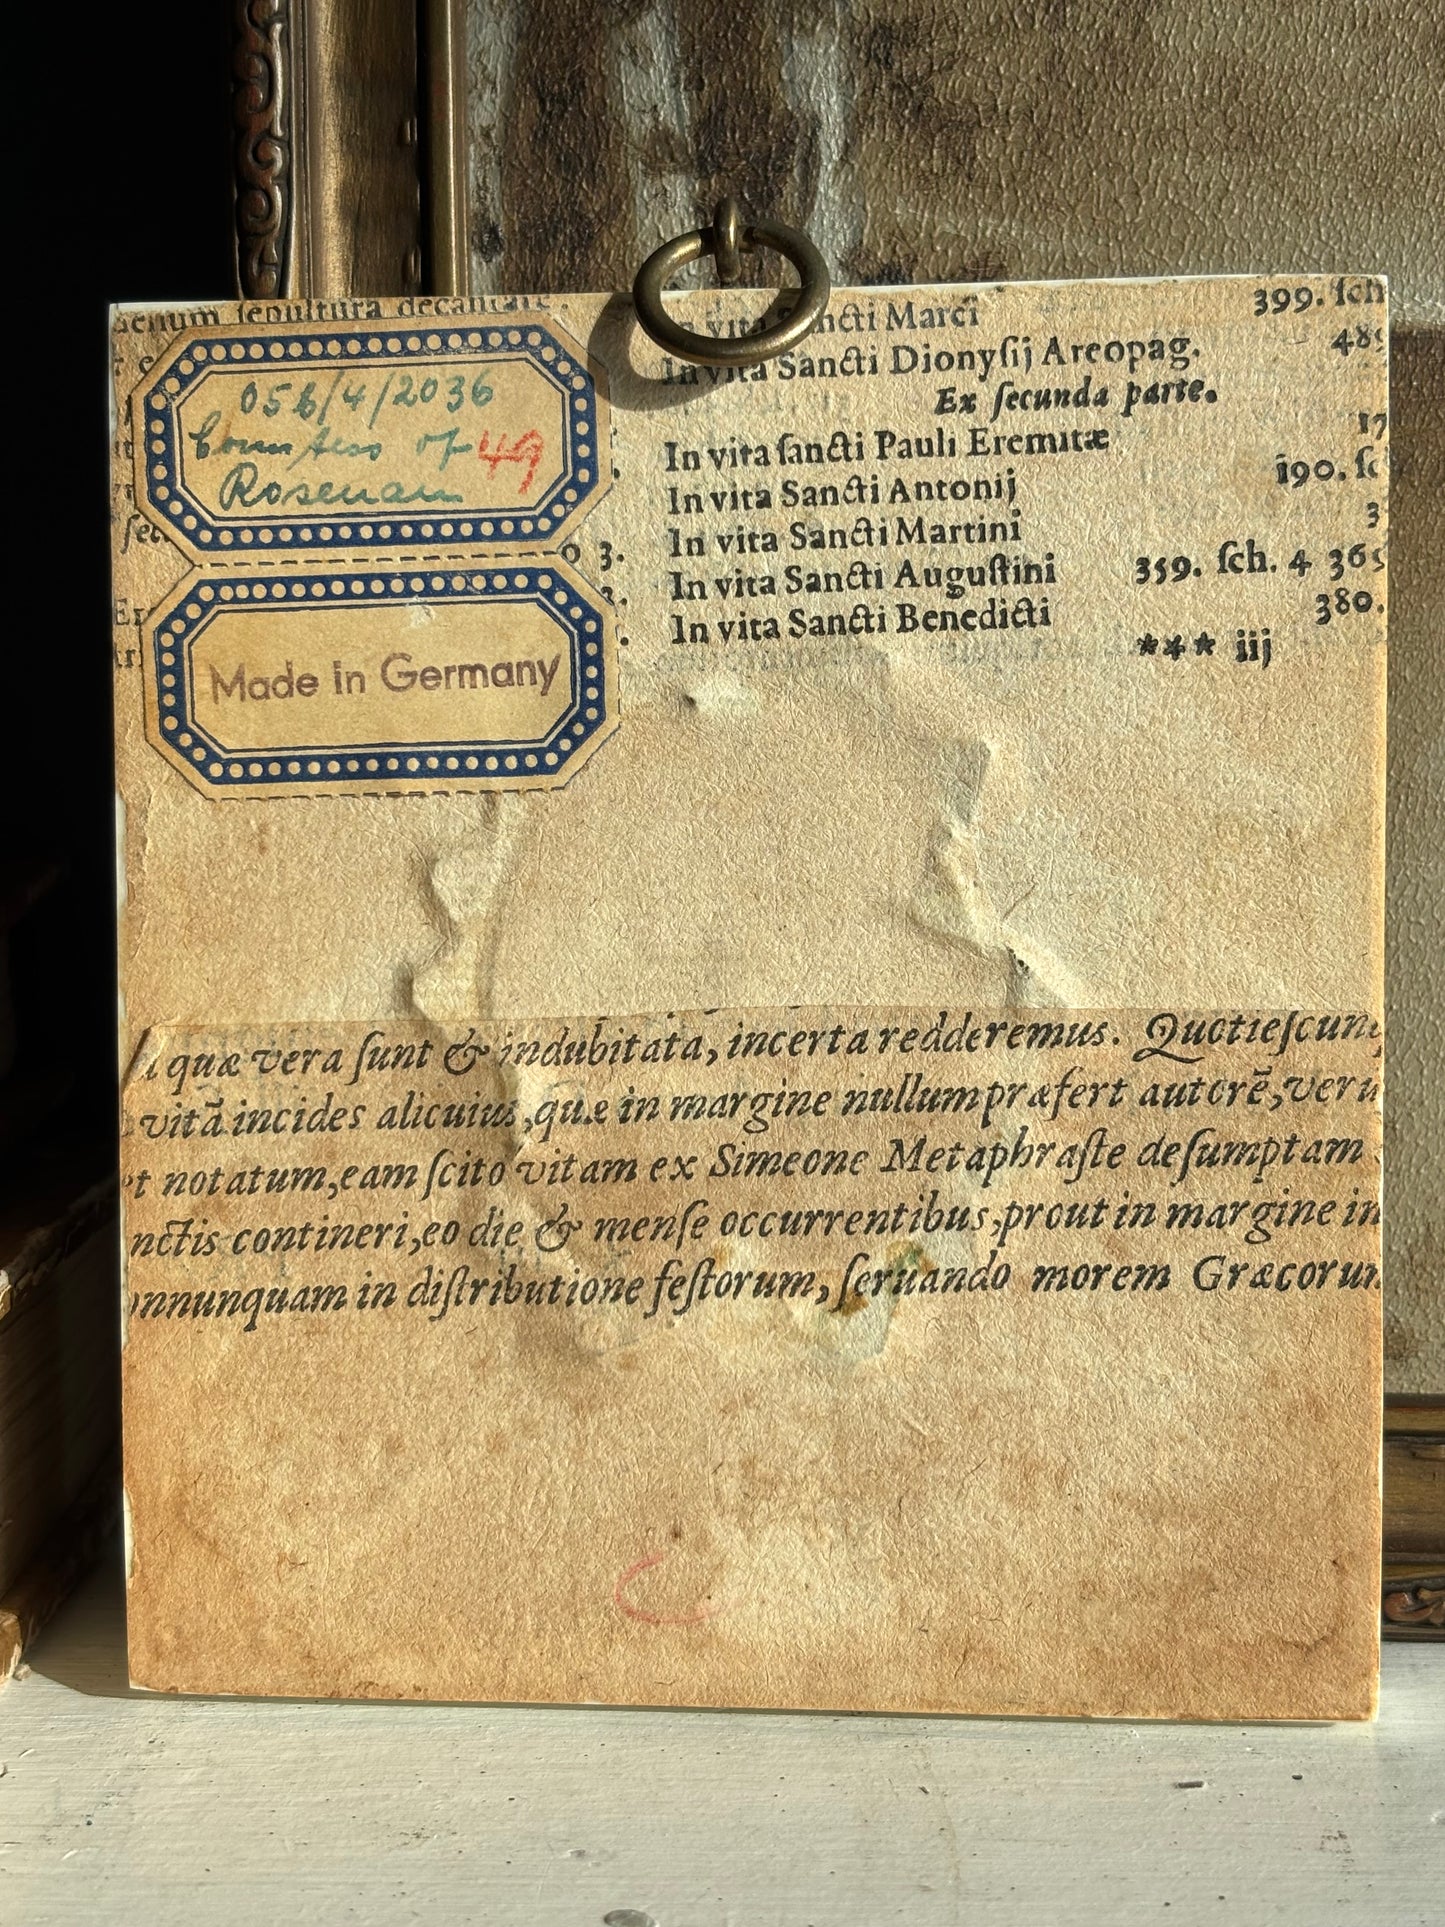 sepultura decantare.
In vita Sancti Marci 399. ſch
In vita Sancti Dionyſij Areopag. 489
Ex ſecunda parte.
In vita ſancti Pauli Eremitæ 17
In vita Sancti Antonij 190. ſc
In vita Sancti Martini 3
In vita Sancti Auguſtini 359. ſch. 4 365
In vita Sancti Benedicti 380.
*** iij
056/4/2036
Countess of 49
Rosenau
o 3.
Made in Germany
quæ vera ſunt & indubitata, incerta redderemus. Quotieſcunq
vitā incides alicuius, quæ in margine nullum præfert autorē, veru
t notatum, eam ſcito vitam ex Simeone Metaphraſte deſumptam
nctis contineri, eo die & menſe occurrentibus, prout in margine in
onnunquam in diſtributione feſtorum, ſeruando morem Græcorum